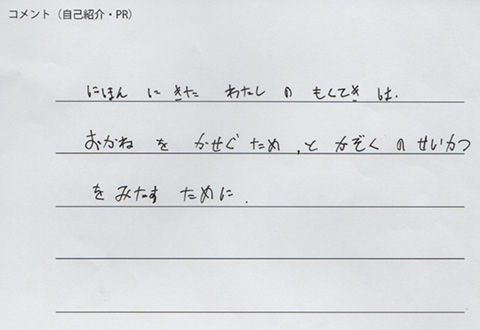 コメント（自己紹介・PR）
にほん に きた わたし の もくてき は.
おかね を かせぐ ため、と かぞく の せいかつ
を みたす ために.